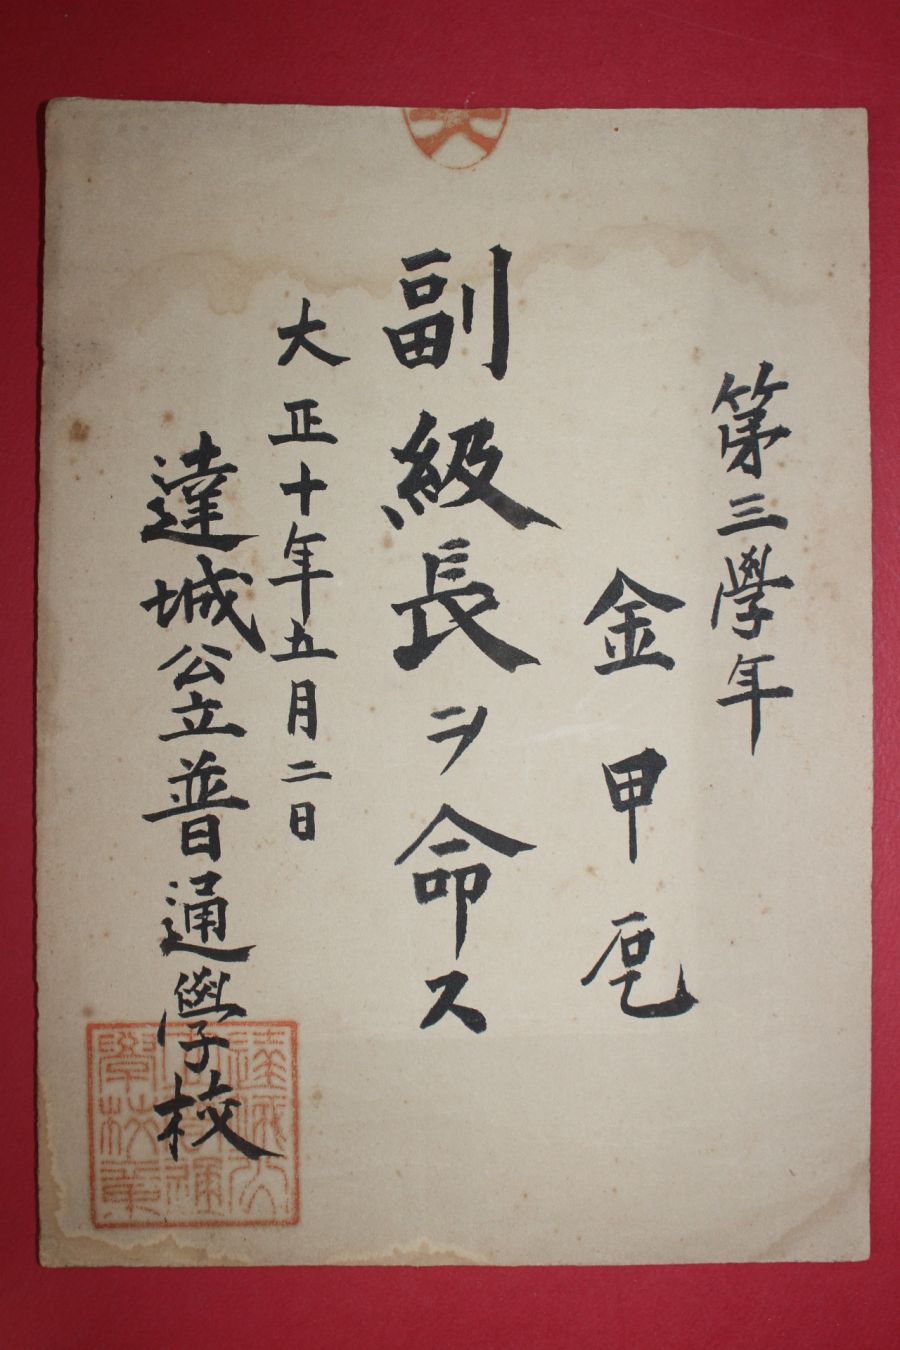 第三學年
金甲乭
副級長ヲ命ス
大正十年五月二日
達城公立普通學校
達城公
立普通
學校章